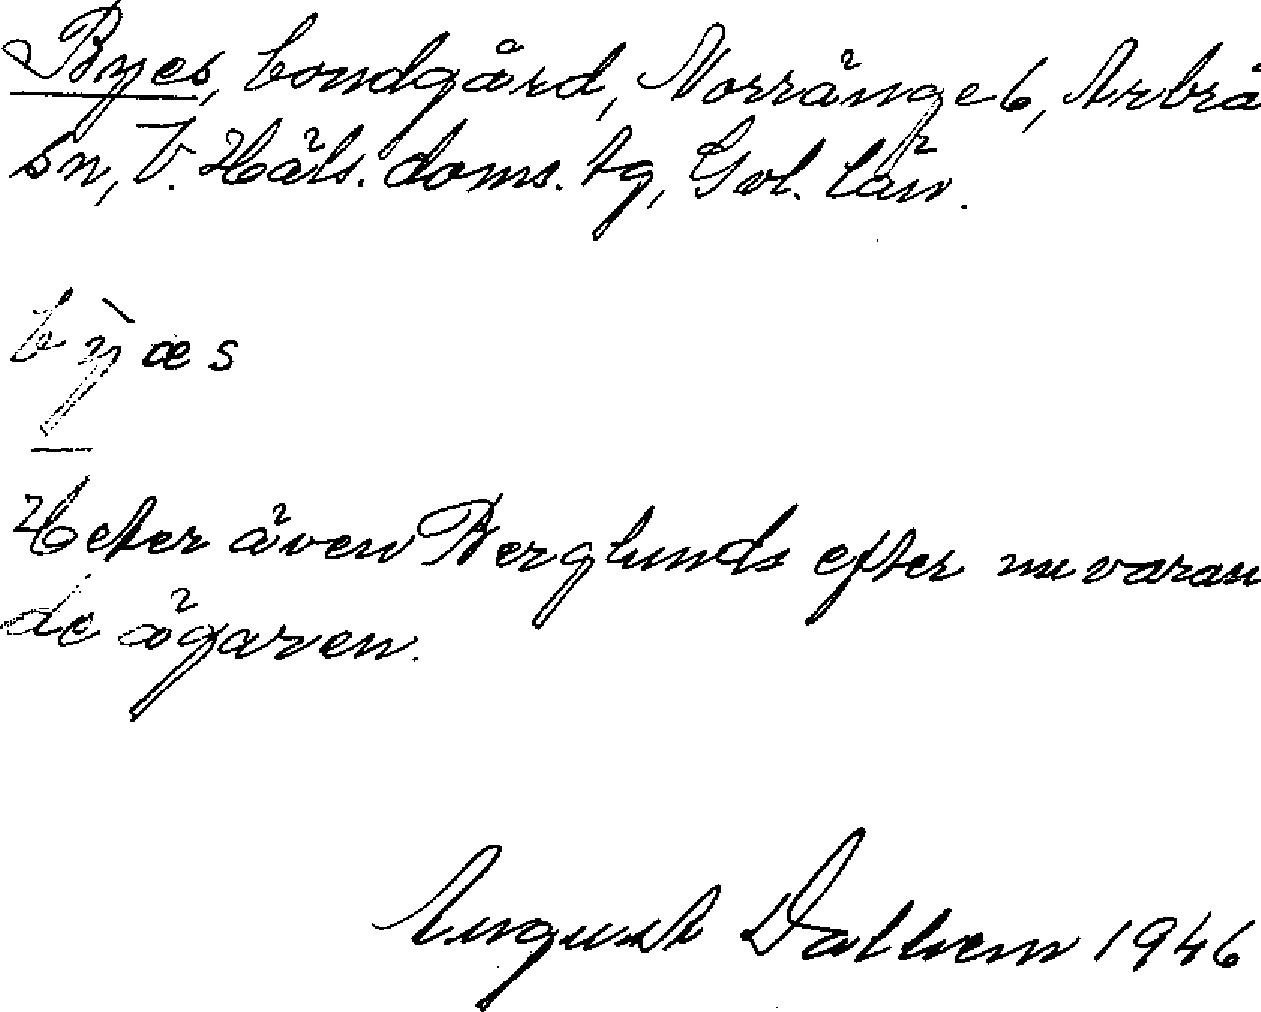 Byes, bondgård, Norränge 6, Arbrå
sn, V. Häls. doms. tg, Gvl. län.
bỳæs
Heter även Berglunds efter nuvaran
de ägaren.
August Dalhem 1946